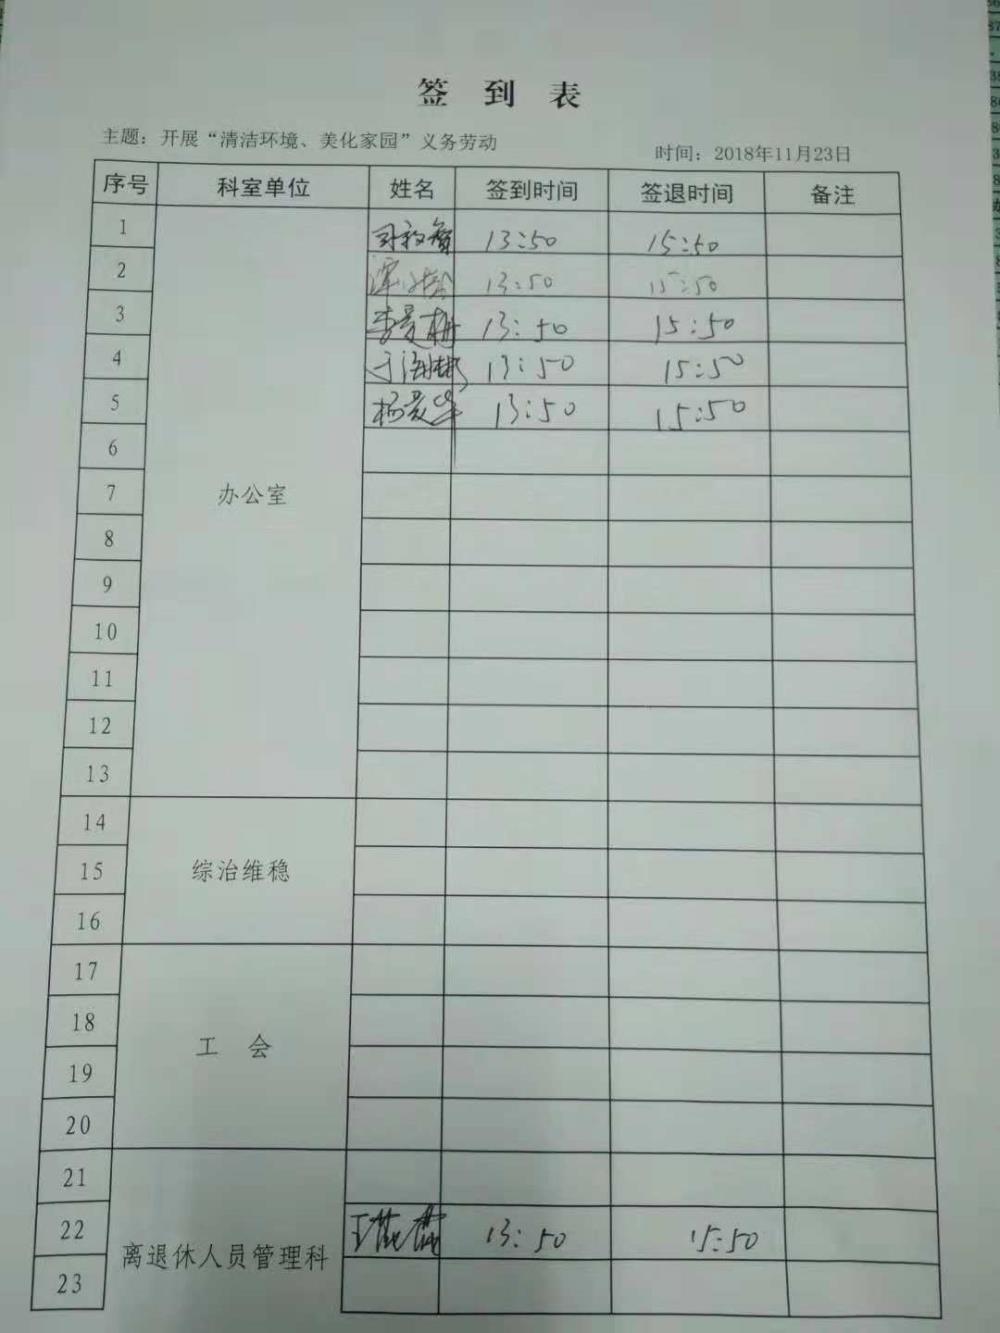 签 到 表
主题：开展“清洁环境、美化家园”义务劳动
时间：2018年11月23日
序号 科室单位 姓名 签到时间 签退时间 备注
1 13:50 15:50
2 13:50 15:50
3 李爱梅 13:50 15:50
4 于海彬 13:50 15:50
5 杨爱华 13:50 15:50
6
7 办公室
8
9
10
11
12
13
14
15 综治维稳
16
17
18
工 会
19
20
21
22 13:50 15:50
离退休人员管理科
23